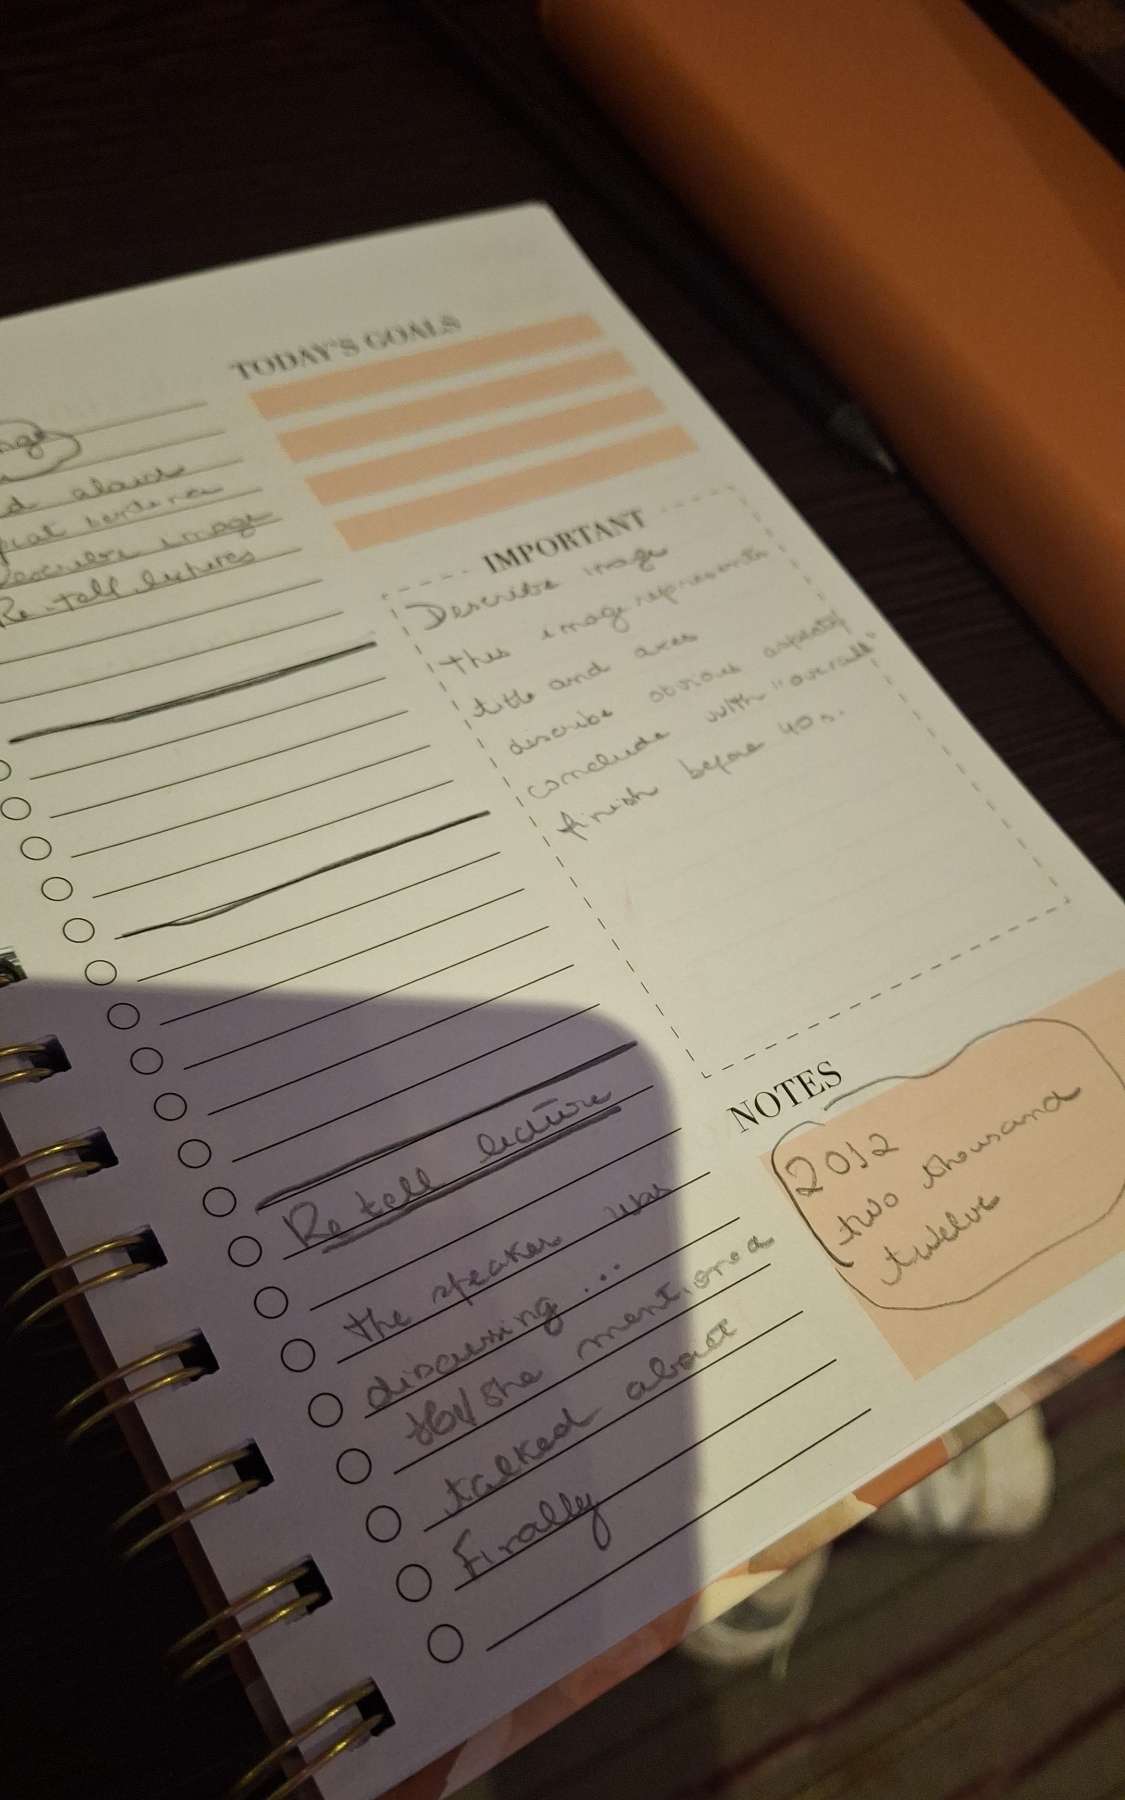 TODAY'S GOALS
alowe
sentence
image
Re-tell lectures
IMPORTANT
Describe image
this image represents
title and axes
describe obvious aspects
conclude with "overall"
finish before 40s.
Re tell lecture
the speaker was
discussing ...
he/she mentioned
talked about
Finally
NOTES
2012
two thousand
twelve